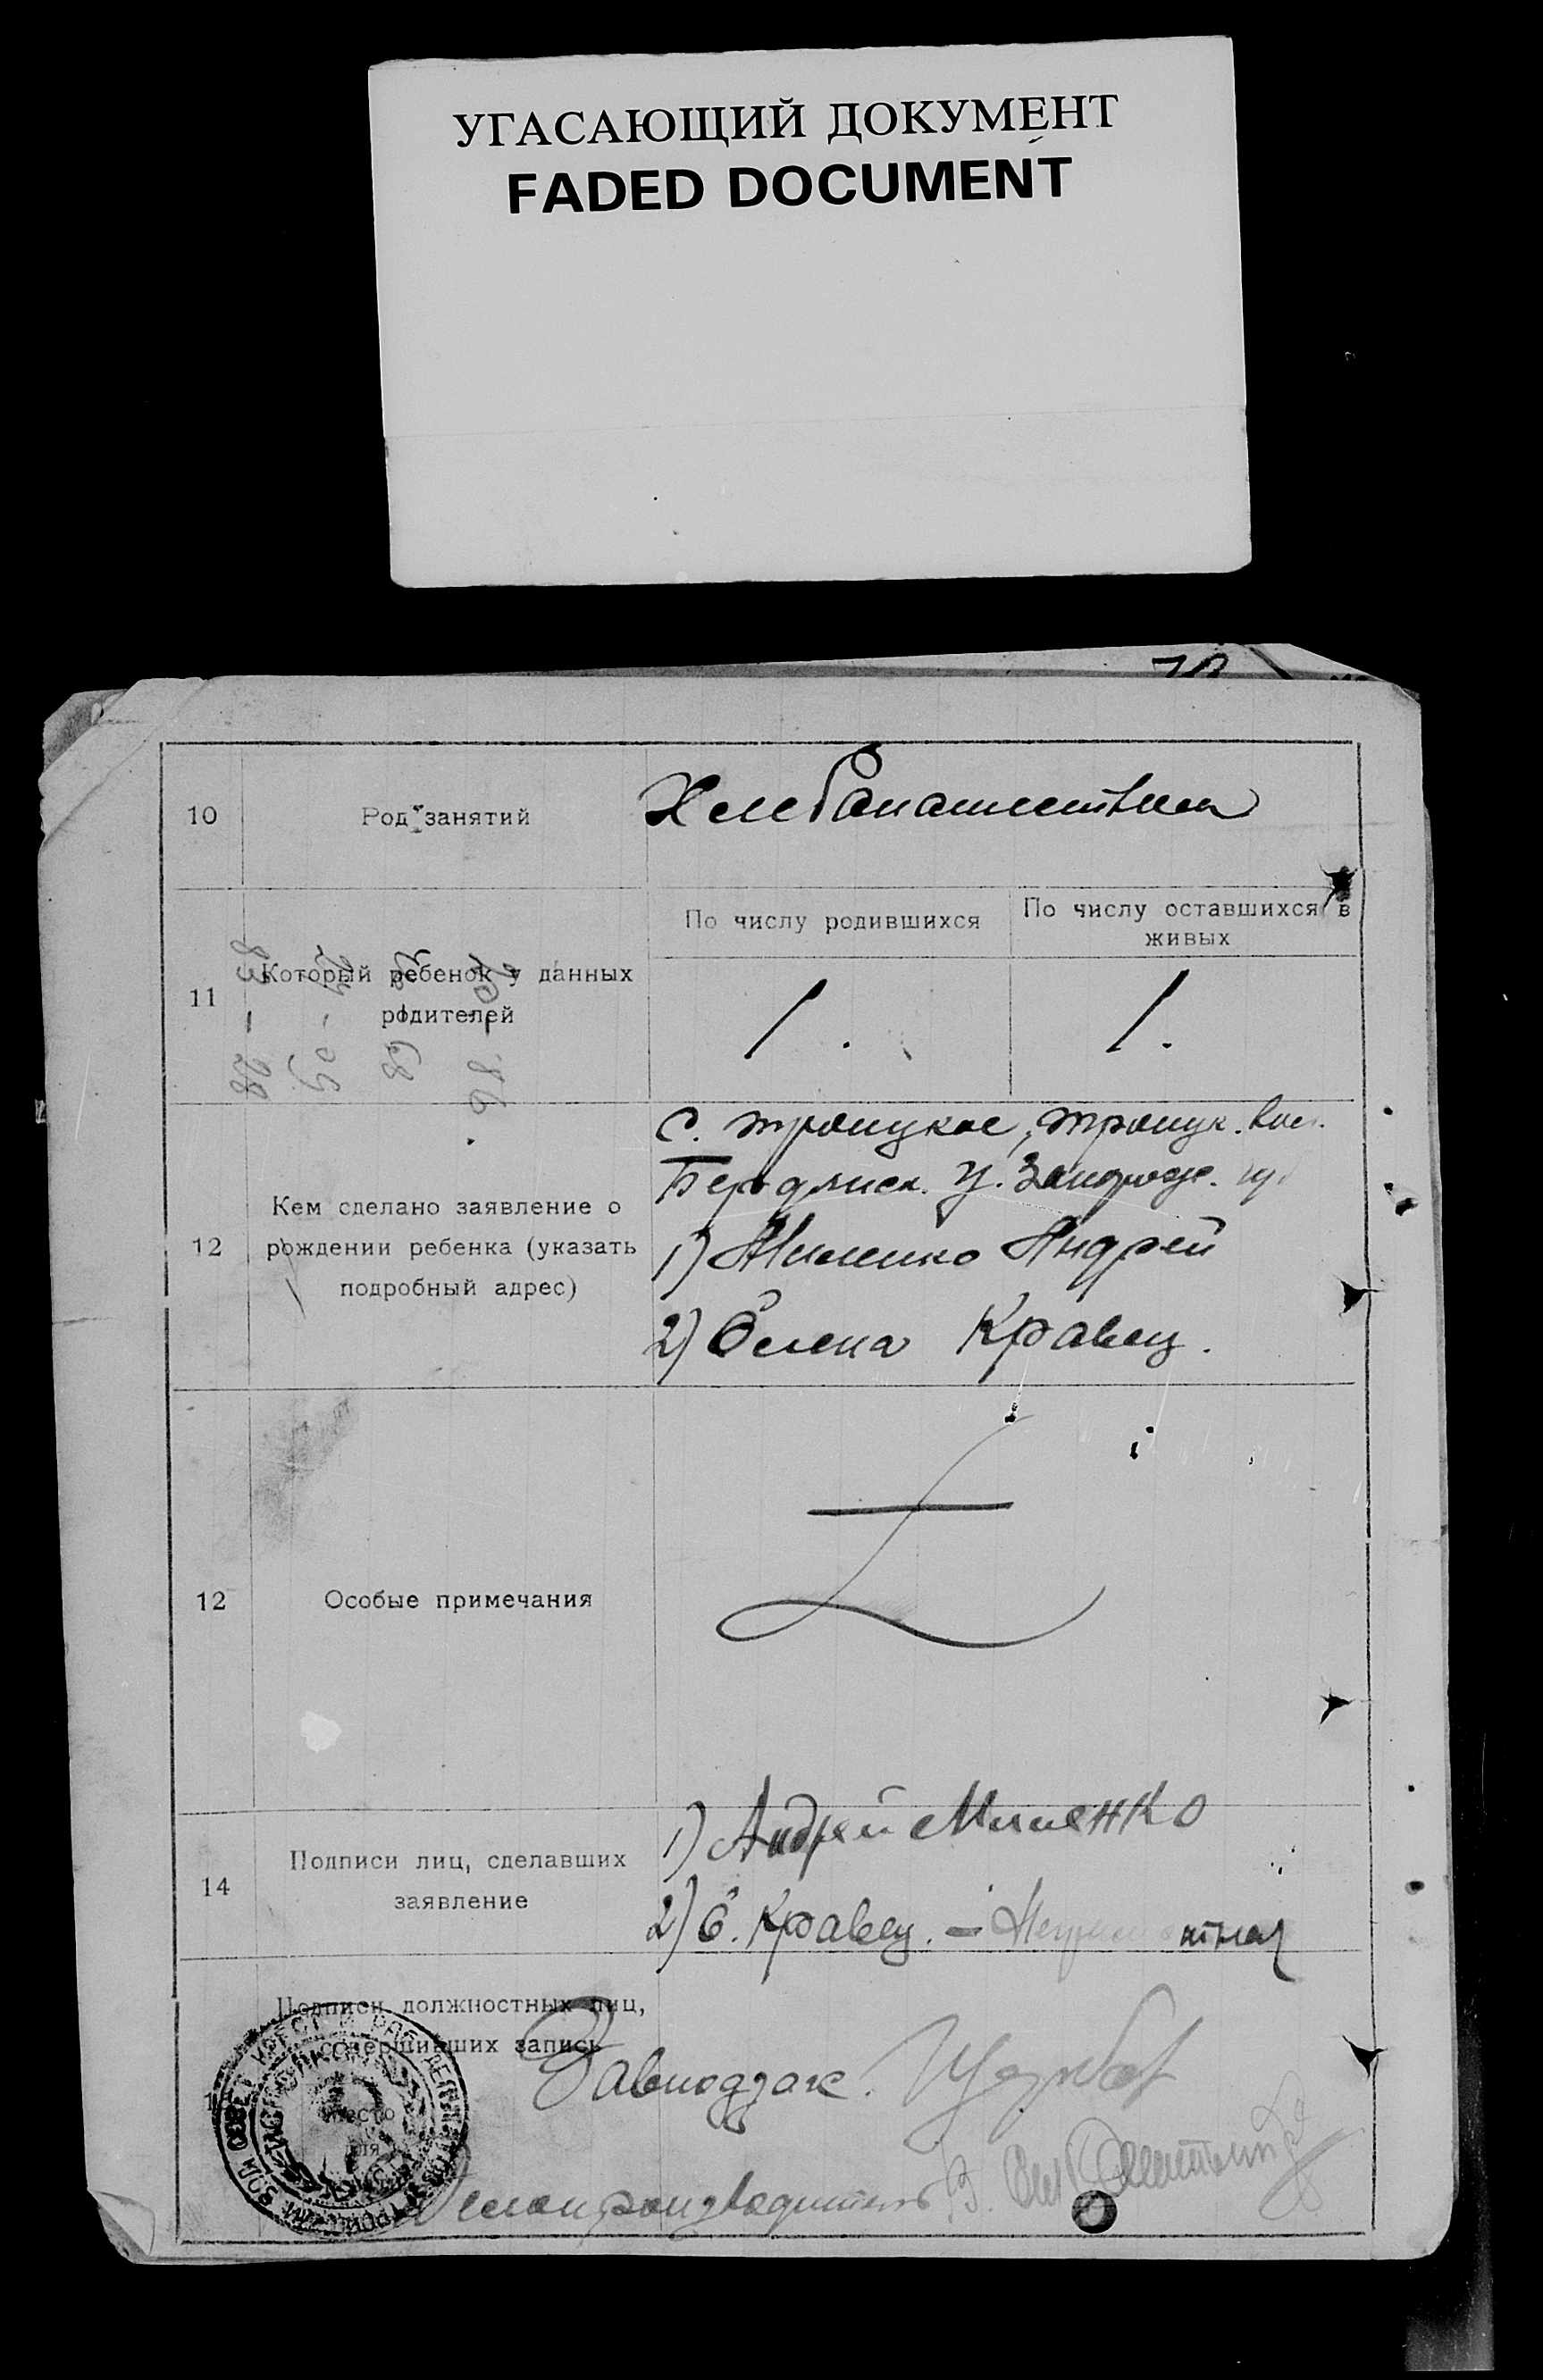 УГАСАЮЩИЙ ДОКУМЕНТ
FADED DOCUMENT
10
Род занятий
Хлебопашество
По числу родившихся
По числу оставшихся в
живых
11
Который ребенок у данных
родителей
1.
1.
12
Кем сделано заявление о
рождении ребенка (указать
подробный адрес)
С. Троицкое, Троицк. вол.
Бердянск. у. Запорож. гу
1) Миленко Андрей
2) Елена Кравец.
12
Особые примечания
14
Подписи лиц, сделавших
заявление
1) Андрей Миленко
2) Е. Кравец. - Неграмотная
Подписи должностных лиц,
совершивших запись
Завподзаг. Щерба
место
для
Делопроизводитель